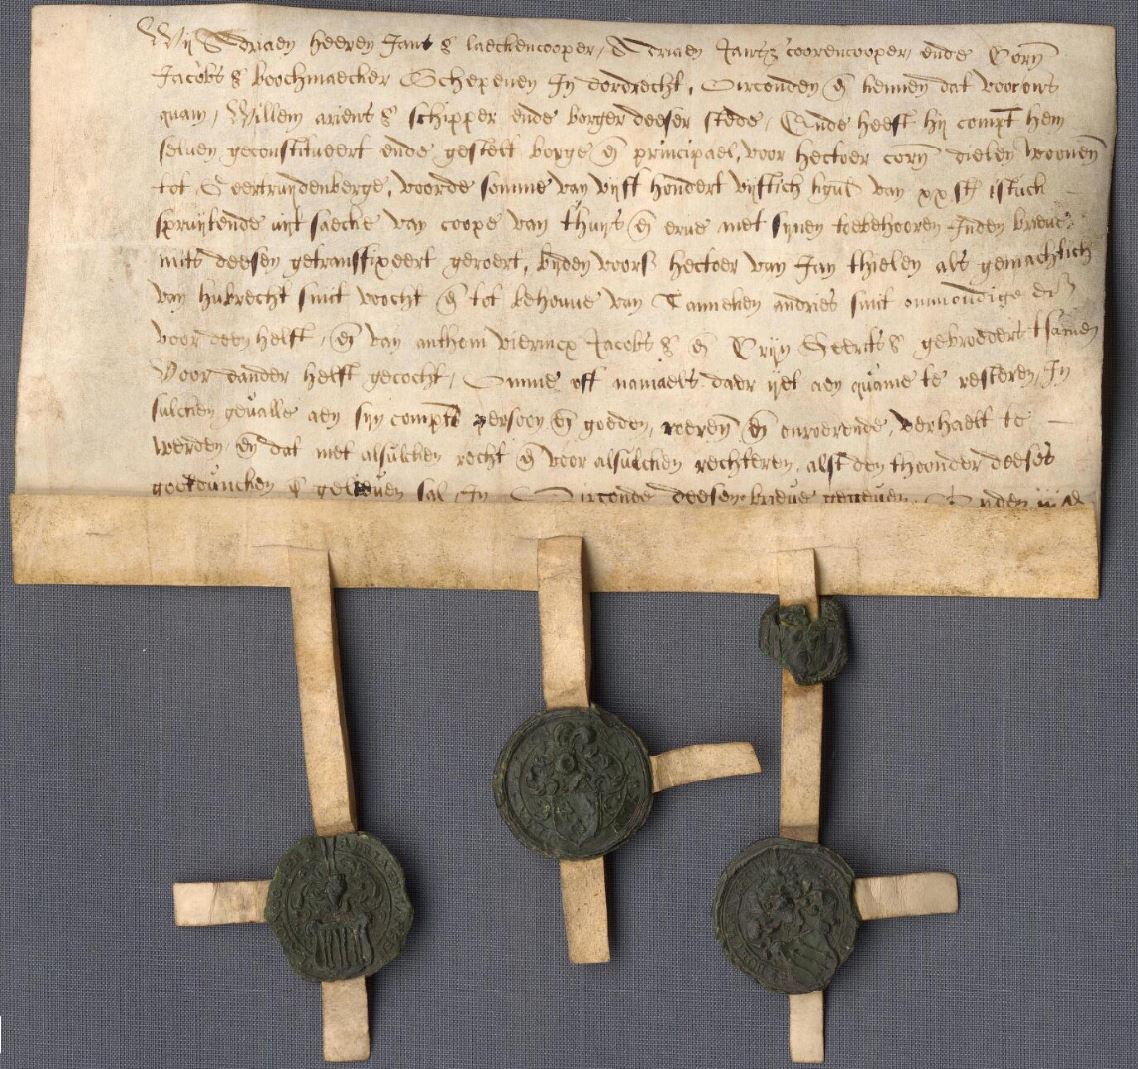 Wij Adriaen heeren Jans s laeckencooper, Adriaen Jansz coorencooper, ende Corn
Jacobs s boochmaecker Schepenen In dordrecht, Oirconden en kennen dat voor ons
quam, Willem ariens s schipper ende borger deeser stede, Ende heeft hij compt hem
selven geconstitueert ende gestelt borge en principael, voor hectoer corn dielen woonen
tot Geertruijdenberge, voorde somme van vijff hondert vijftich kgul van xx st istuck
spruijtende uijt saecke van coope van thuijs en erue met sijnen toebehooren Inden brieue
mits deesen getransfixeert geroert, bijden voors hectoer van Jan thielen als gemachtich
van hubrecht smit voocht en tot behoeue van Tanneken andries smit onmondige
voor deen helft, en van anthoni vierincx Jacobs s en Crijn Geerits s gebroeders tsamen
Voor dander helft gecocht, Omme off namaels daer ijet aen quame te resteren, In
sulcken gevalle aen sijn compts persoon en goeden, roeren en onroerende, verhaelt te
werden, en dat met alsulcken recht en voor alsulcken rechteren, alst den thoonder deeses
goetduncken en gelieven sal, In Oirconde deesen brieve gegeven,